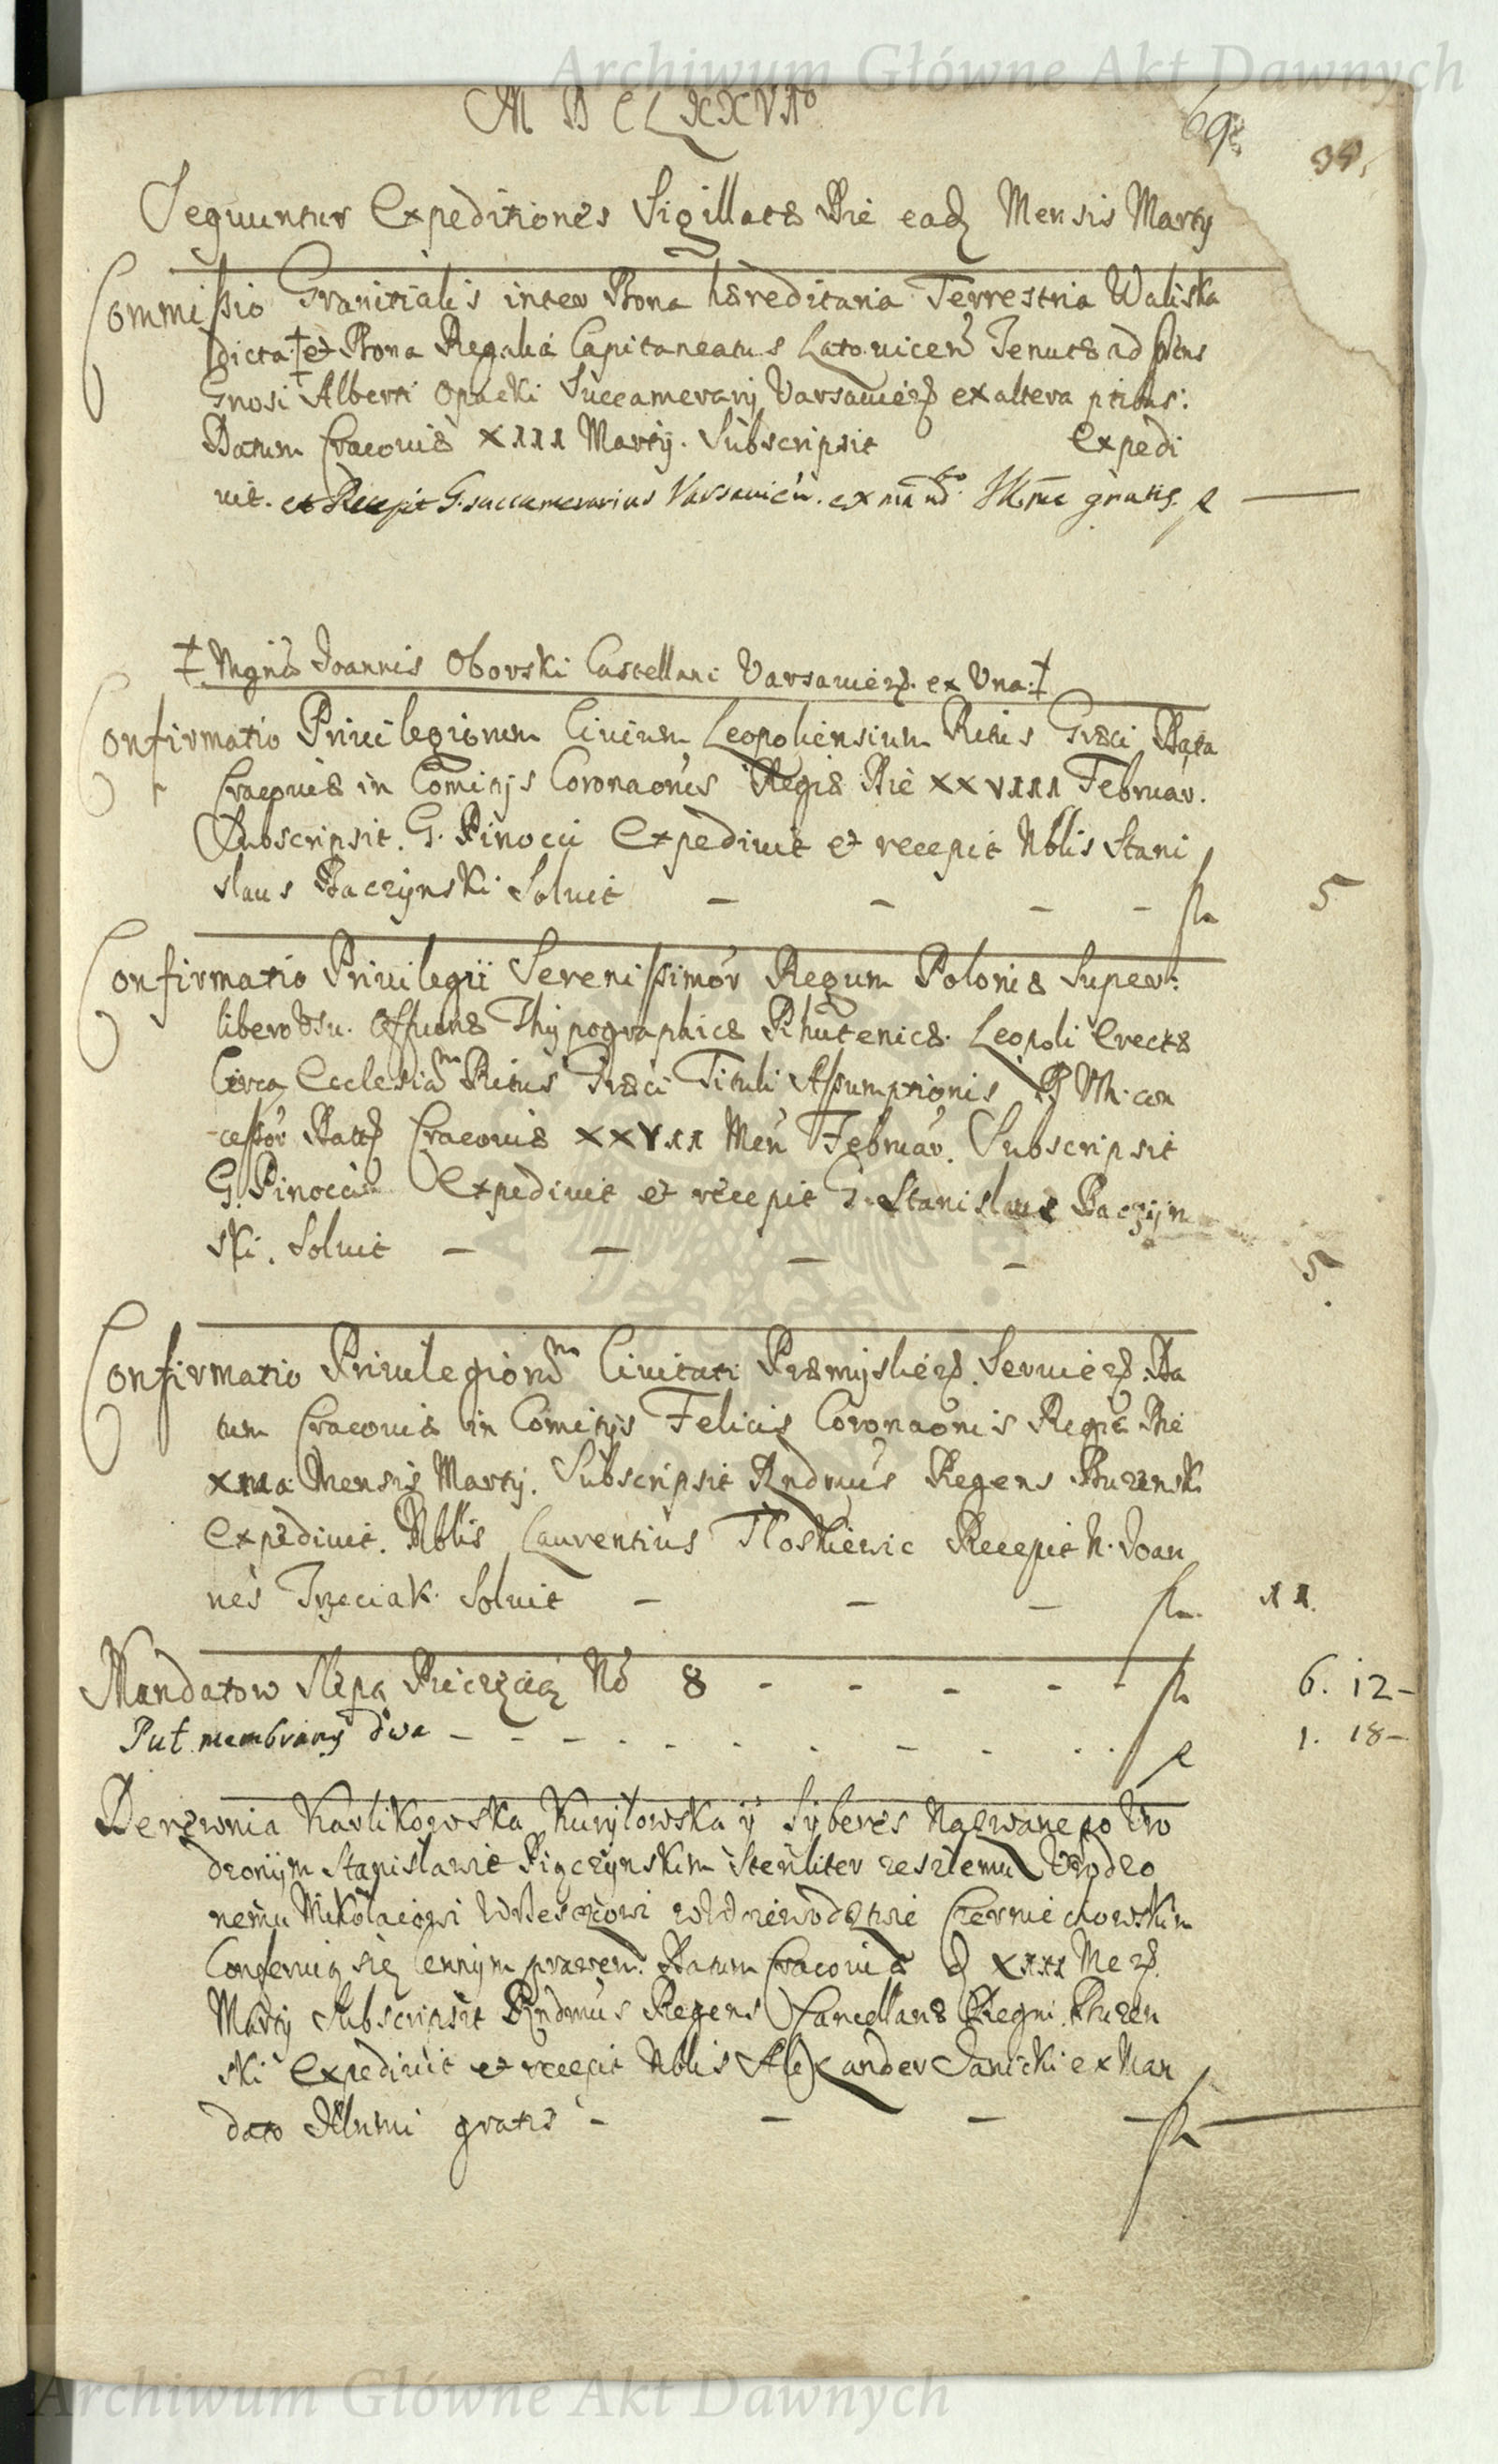 Archiwum Główne Akt Dawnych
M D C L XXVI°
69
34.
Sequuntur Expeditiones Sigillatæ Die eadẽ Mensis Martij
Commissio Granitialis inter Bona hæreditaria Terrestria Waliska
dicta ‡ et Bona Regalia Capitaneatus Latovicen̄ Tenutæ ad pñns
Gnosi Alberti Opacki Succamerarij Varsavien̄ ex altera ptibus:
Datum Cracoviæ XIII Martij. Subscripsit Expedi
vit. et Recepit G. succamerarius Varsavien̄. ex mandto. Illme gratis.
‡ Mgnci Joannis Oborski Castellani Varsavien̄. ex Una ‡
Confirmatio Privilegiorum Civium Leopoliensium Ritus Græci Data
Cracoviæ in Comitijs Coronaōnis Regiæ Die XXVIII Februar.
Subscripsit. G. Pinocci Expedivit et recepit Nblis Stani
slaus Baczynski Solvit - - - - fl. 5
Confirmatio Privilegii Serenissimor̄ Regum Poloniæ Super
libero Usu. Officinæ Thypographicæ Rhutenicæ. Leopoli Erectæ
Circa Ecclesiam Ritus Græci Tituli Assumptionis B V M. con
cessor̄ Cracoviæ XXVII Men̄ Februar. Subscripsit
G. Pinocci Expedivit et recepit G. Stanislaus Baczyn
ski. Solvit - - - - 5.
Confirmatio Privilegiorum Civitati Præmyslien̄. Servien̄. Da
tum Cracoviæ in Comitijs Felicis Coronaōnis Regiæ Die
Mensis Martij. Subscripsit Rndmus Regens Buzensk
Expedivit. Nblis Laurentius Tloskiewic Recepit N. Joan
nes Trzeciak. Solvit - - - fl. 11.
Mandatow Slepą Pieczęcią No 8 - - - - - fl. 6. 12-
Put membrany dwa - - - - - 1. 18-
Derewnia Karlikowska Kuryłowska ÿ Syberes Nazwane po Uro
dzonÿm Stanisławie Piączynskim Steriliter zeszłemu Urodzo
nemu Mikołaiowi w Woiewodztwie Czerniechowskim
Conferuią się lennym prawem. Datum Cracoviæ d XIII Men̄.
Martij Subscripsit Rndmus Regens Cancellariæ Regni. Buzen
ski Expedivit et recepit Nblis Alexander Janicki ex Man
dato Illmi gratis - - - - fl.
Archiwum Główne Akt Dawnych